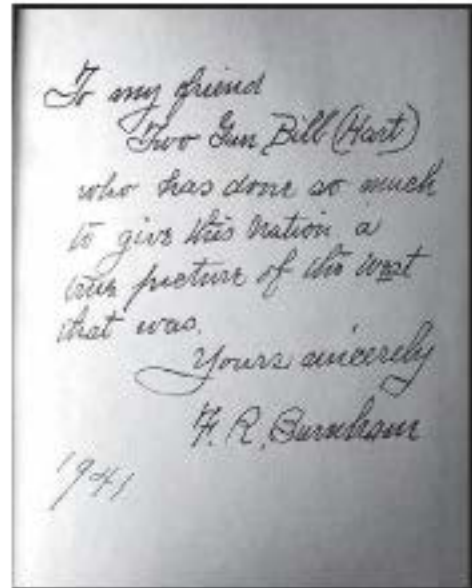 To my friend
Two Gun Bill (Hart)
who has done so much
to give this Nation a
true picture of the West
that was.
Yours sincerely
F. R. Burnham
1941